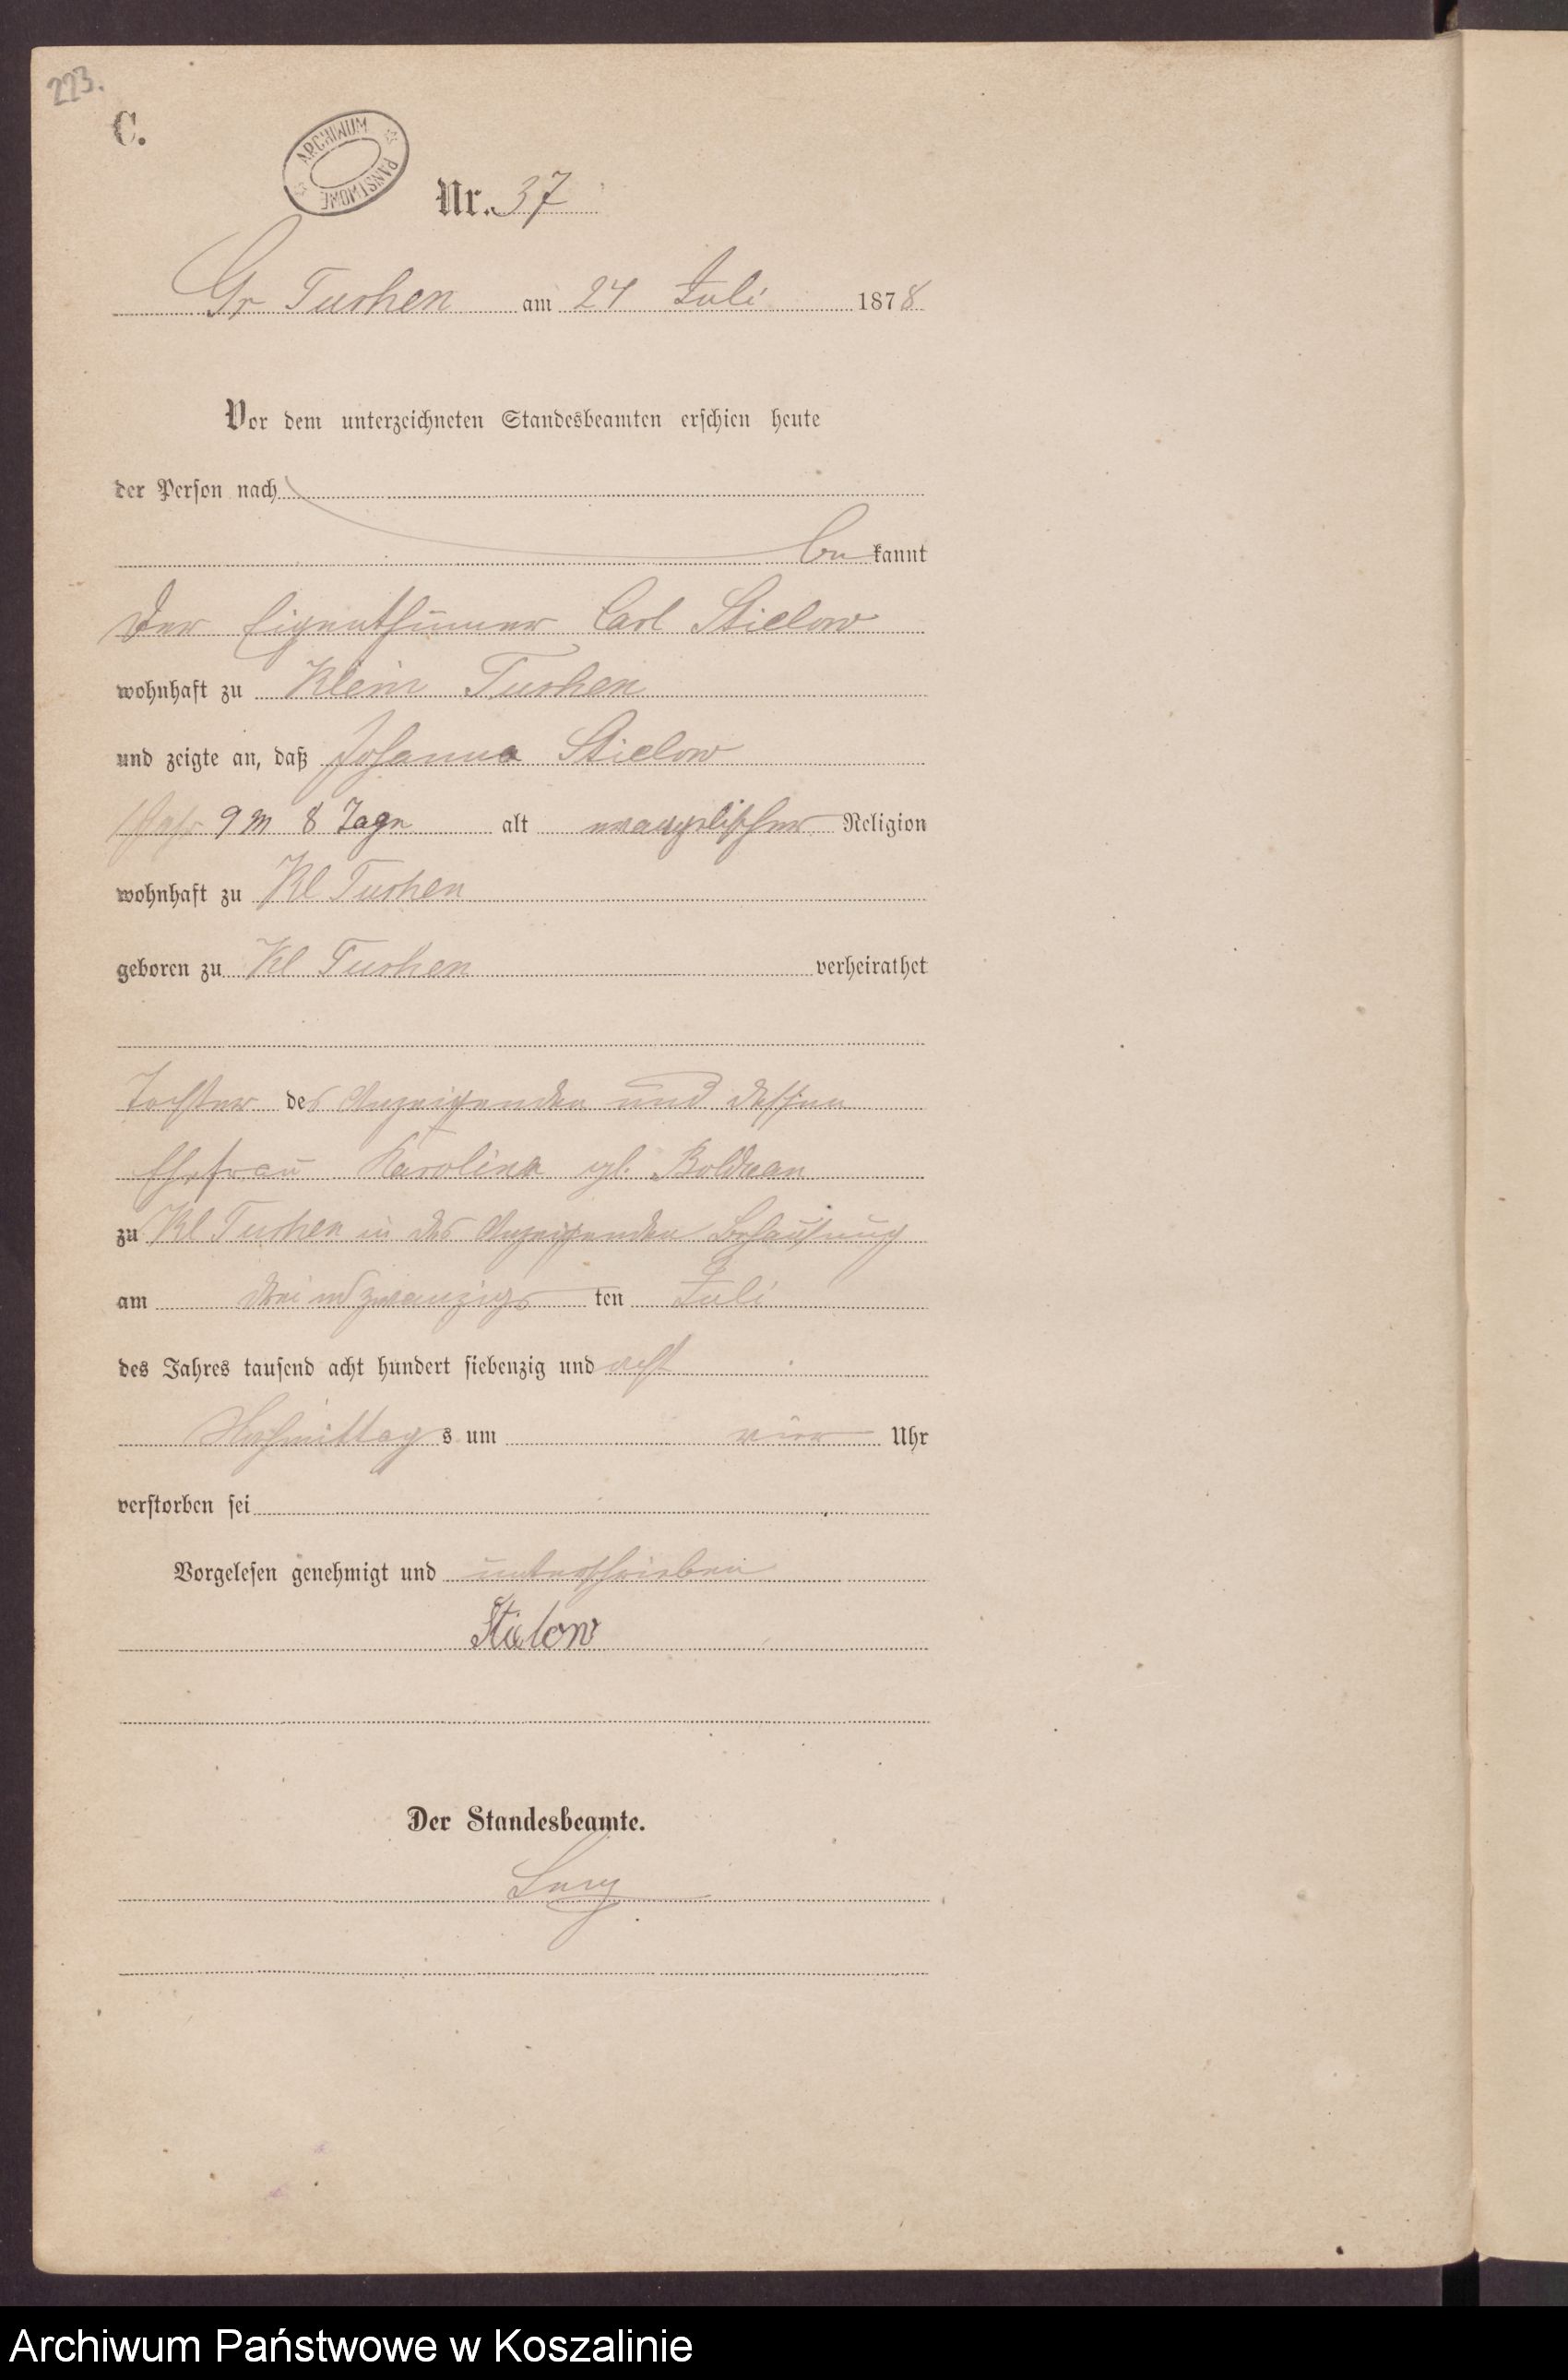 223.
C.
ARCHIWUM PAŃSTWOWE
Nr. 37
Gr Tuchen am 24 Juli 1878
Vor dem unterzeichneten Standesbeamten erschien heute
der Person nach
be kannt
Der Eigenthümer Carl Stielow
wohnhaft zu Klein Tuchen
und zeigte an, daß Johanna Stielow
1 Jahr 9 M 8 Tage alt evangelischer Religion
wohnhaft zu Kl Tuchen
geboren zu Kl Tuchen verheirathet
Tochter des Anzeigenden und dessen
Ehefrau Karoline Bolduan
zu Kl Tuchen in des Anzeigenden Behausung
am drei und zwanzigs ten Juli
des Jahres tausend acht hundert siebenzig und acht
Nachmittag s um vier Uhr
verstorben sei
Vorgelesen genehmigt und unterschrieben
Stielow
Der Standesbeamte.
Archiwum Państwowe w Koszalinie